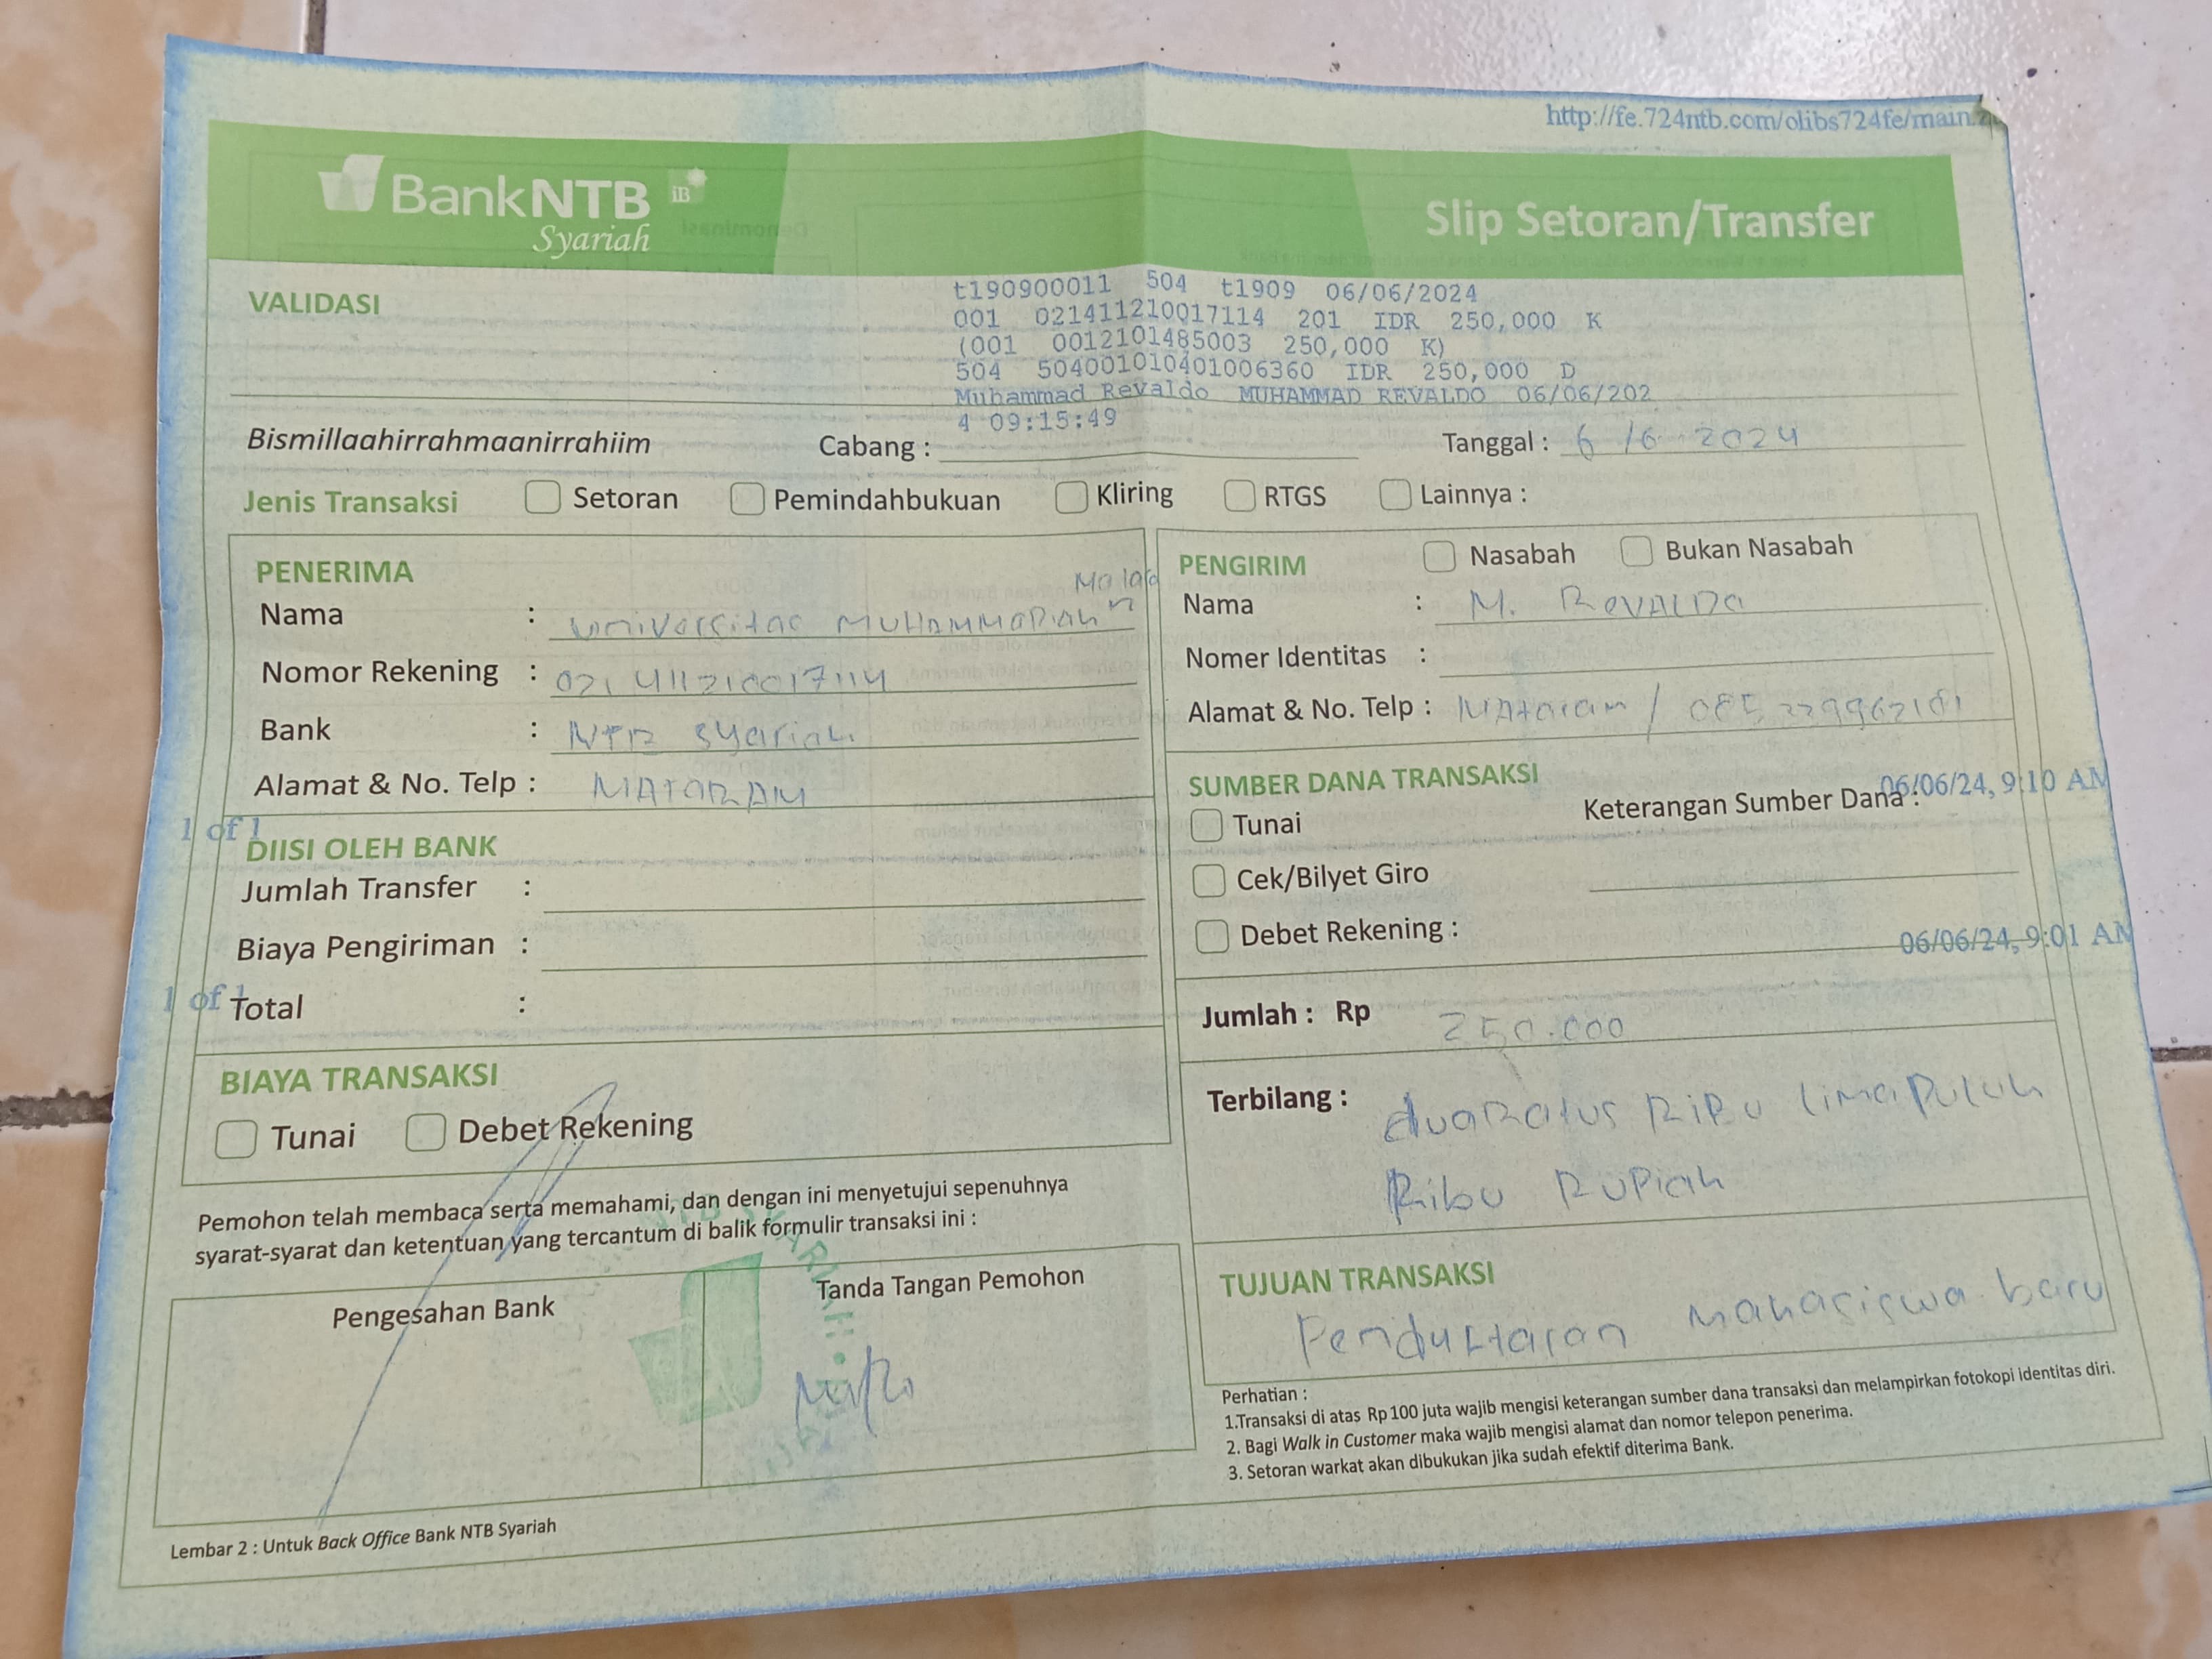 http://fe.724ntb.com/olibs724fe/main.
BankNTB iB
Syariah
Slip Setoran/Transfer
VALIDASI
t190900011 504 t1909 06/06/2024
001 021411210017114 201 IDR 250,000 K
(001 0012101485003 250,000 K)
504 504001010401006360 IDR 250,000 D
Muhammad Revaldo MUHAMMAD REVALDO 06/06/202
4 09:15:49
Bismillaahirrahmaanirrahiim
Cabang :
Tanggal : 6 /6 2024
Jenis Transaksi Setoran Pemindahbukuan Kliring RTGS Lainnya :
PENERIMA
Nama : Universitas MUHAMMADiah
Nomor Rekening : 021411210017114
Bank : NTB Syariah
Alamat & No. Telp : MATARAM
PENGIRIM Nasabah Bukan Nasabah
Nama : M. REVALDO
Nomer Identitas :
Alamat & No. Telp : MAtaram /
SUMBER DANA TRANSAKSI
06/06/24, 9:10 AM
Tunai
Keterangan Sumber Dana :
Cek/Bilyet Giro
Debet Rekening :
06/06/24, 9:01 AM
1 of 1
DIISI OLEH BANK
Jumlah Transfer :
Biaya Pengiriman :
1 of 1
Total :
Jumlah : Rp 250.000
Terbilang : duaRatus RiBu limaPuluh
Ribu RuPiah
BIAYA TRANSAKSI
Tunai Debet Rekening
Pemohon telah membaca serta memahami, dan dengan ini menyetujui sepenuhnya
syarat-syarat dan ketentuan yang tercantum di balik formulir transaksi ini :
Pengesahan Bank
Tanda Tangan Pemohon
TUJUAN TRANSAKSI
Mahasiswa baru
Perhatian :
1.Transaksi di atas Rp 100 juta wajib mengisi keterangan sumber dana transaksi dan melampirkan fotokopi identitas diri.
2. Bagi Walk in Customer maka wajib mengisi alamat dan nomor telepon penerima.
3. Setoran warkat akan dibukukan jika sudah efektif diterima Bank.
Lembar 2 : Untuk Back Office Bank NTB Syariah